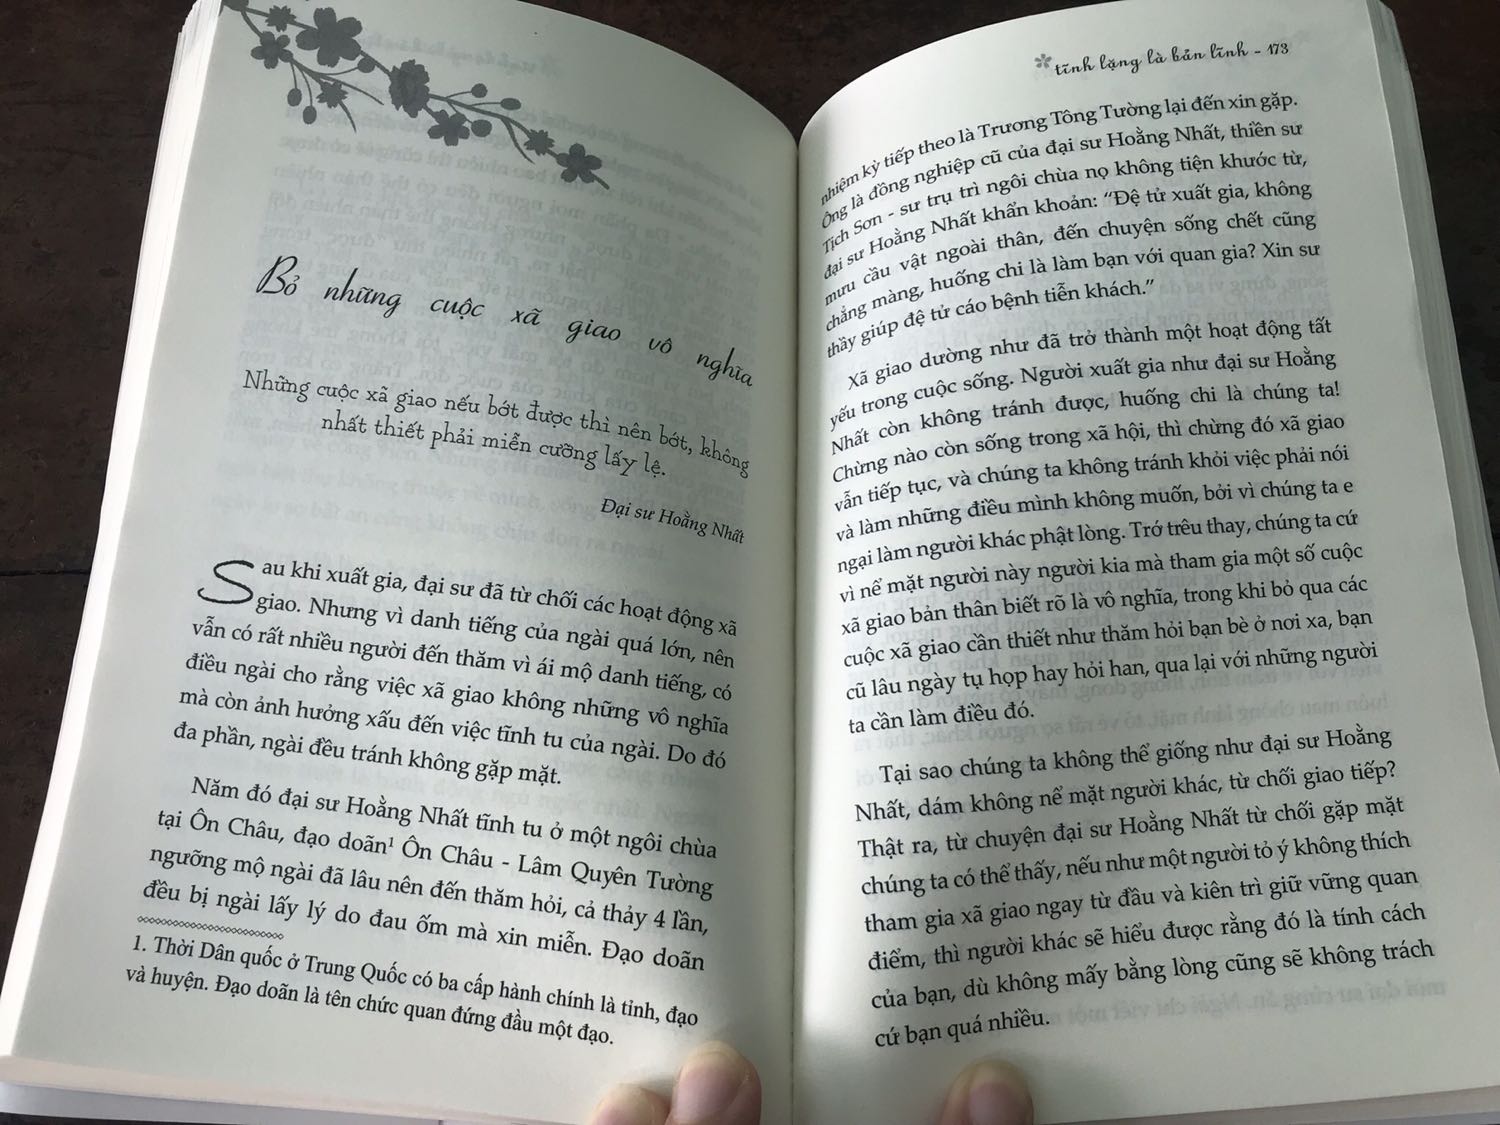 Bỏ những cuộc xã giao vô nghĩa
Những cuộc xã giao nếu bớt được thì nên bớt, không
nhất thiết phải miễn cưỡng lấy lệ.
Đại sư Hoằng Nhất
Sau khi xuất gia, đại sư đã từ chối các hoạt động xã
giao. Nhưng vì danh tiếng của ngài quá lớn, nên
vẫn có rất nhiều người đến thăm vì ái mộ danh tiếng, có
điều ngài cho rằng việc xã giao không những vô nghĩa
mà còn ảnh hưởng xấu đến việc tĩnh tu của ngài. Do đó
đa phần, ngài đều tránh không gặp mặt.
Năm đó đại sư Hoằng Nhất tĩnh tu ở một ngôi chùa
tại Ôn Châu, đạo doãn1 Ôn Châu - Lâm Quyên Tường
ngưỡng mộ ngài đã lâu nên đến thăm hỏi, cả thảy 4 lần,
đều bị ngài lấy lý do đau ốm mà xin miễn. Đạo doãn
1. Thời Dân quốc ở Trung Quốc có ba cấp hành chính là tỉnh, đạo
và huyện. Đạo doãn là tên chức quan đứng đầu một đạo.
tĩnh lặng là bản lĩnh - 173
nhiệm kỳ tiếp theo là Trương Tông Tường lại đến xin gặp.
Ông là đồng nghiệp cũ của đại sư Hoằng Nhất, thiền sư
Tịch Sơn - sư trụ trì ngôi chùa nọ không tiện khước từ,
đại sư Hoằng Nhất khẩn khoản: “Đệ tử xuất gia, không
mưu cầu vật ngoài thân, đến chuyện sống chết cũng
chẳng màng, huống chi là làm bạn với quan gia? Xin sư
thầy giúp đệ tử cáo bệnh tiễn khách.”
Xã giao dường như đã trở thành một hoạt động tất
yếu trong cuộc sống. Người xuất gia như đại sư Hoằng
Nhất còn không tránh được, huống chi là chúng ta!
Chừng nào còn sống trong xã hội, thì chừng đó xã giao
vẫn tiếp tục, và chúng ta không tránh khỏi việc phải nói
và làm những điều mình không muốn, bởi vì chúng ta e
ngại làm người khác phật lòng. Trớ trêu thay, chúng ta cứ
vì nể mặt người này người kia mà tham gia một số cuộc
xã giao bản thân biết rõ là vô nghĩa, trong khi bỏ qua các
cuộc xã giao cần thiết như thăm hỏi bạn bè ở nơi xa, bạn
cũ lâu ngày tụ họp hay hỏi han, qua lại với những người
ta cần làm điều đó.
Tại sao chúng ta không thể giống như đại sư Hoằng
Nhất, dám không nể mặt người khác, từ chối giao tiếp?
Thật ra, từ chuyện đại sư Hoằng Nhất từ chối gặp mặt
chúng ta có thể thấy, nếu như một người tỏ ý không thích
tham gia xã giao ngay từ đầu và kiên trì giữ vững quan
điểm, thì người khác sẽ hiểu được rằng đó là tính cách
của bạn, dù không mấy bằng lòng cũng sẽ không trách
cứ bạn quá nhiều.